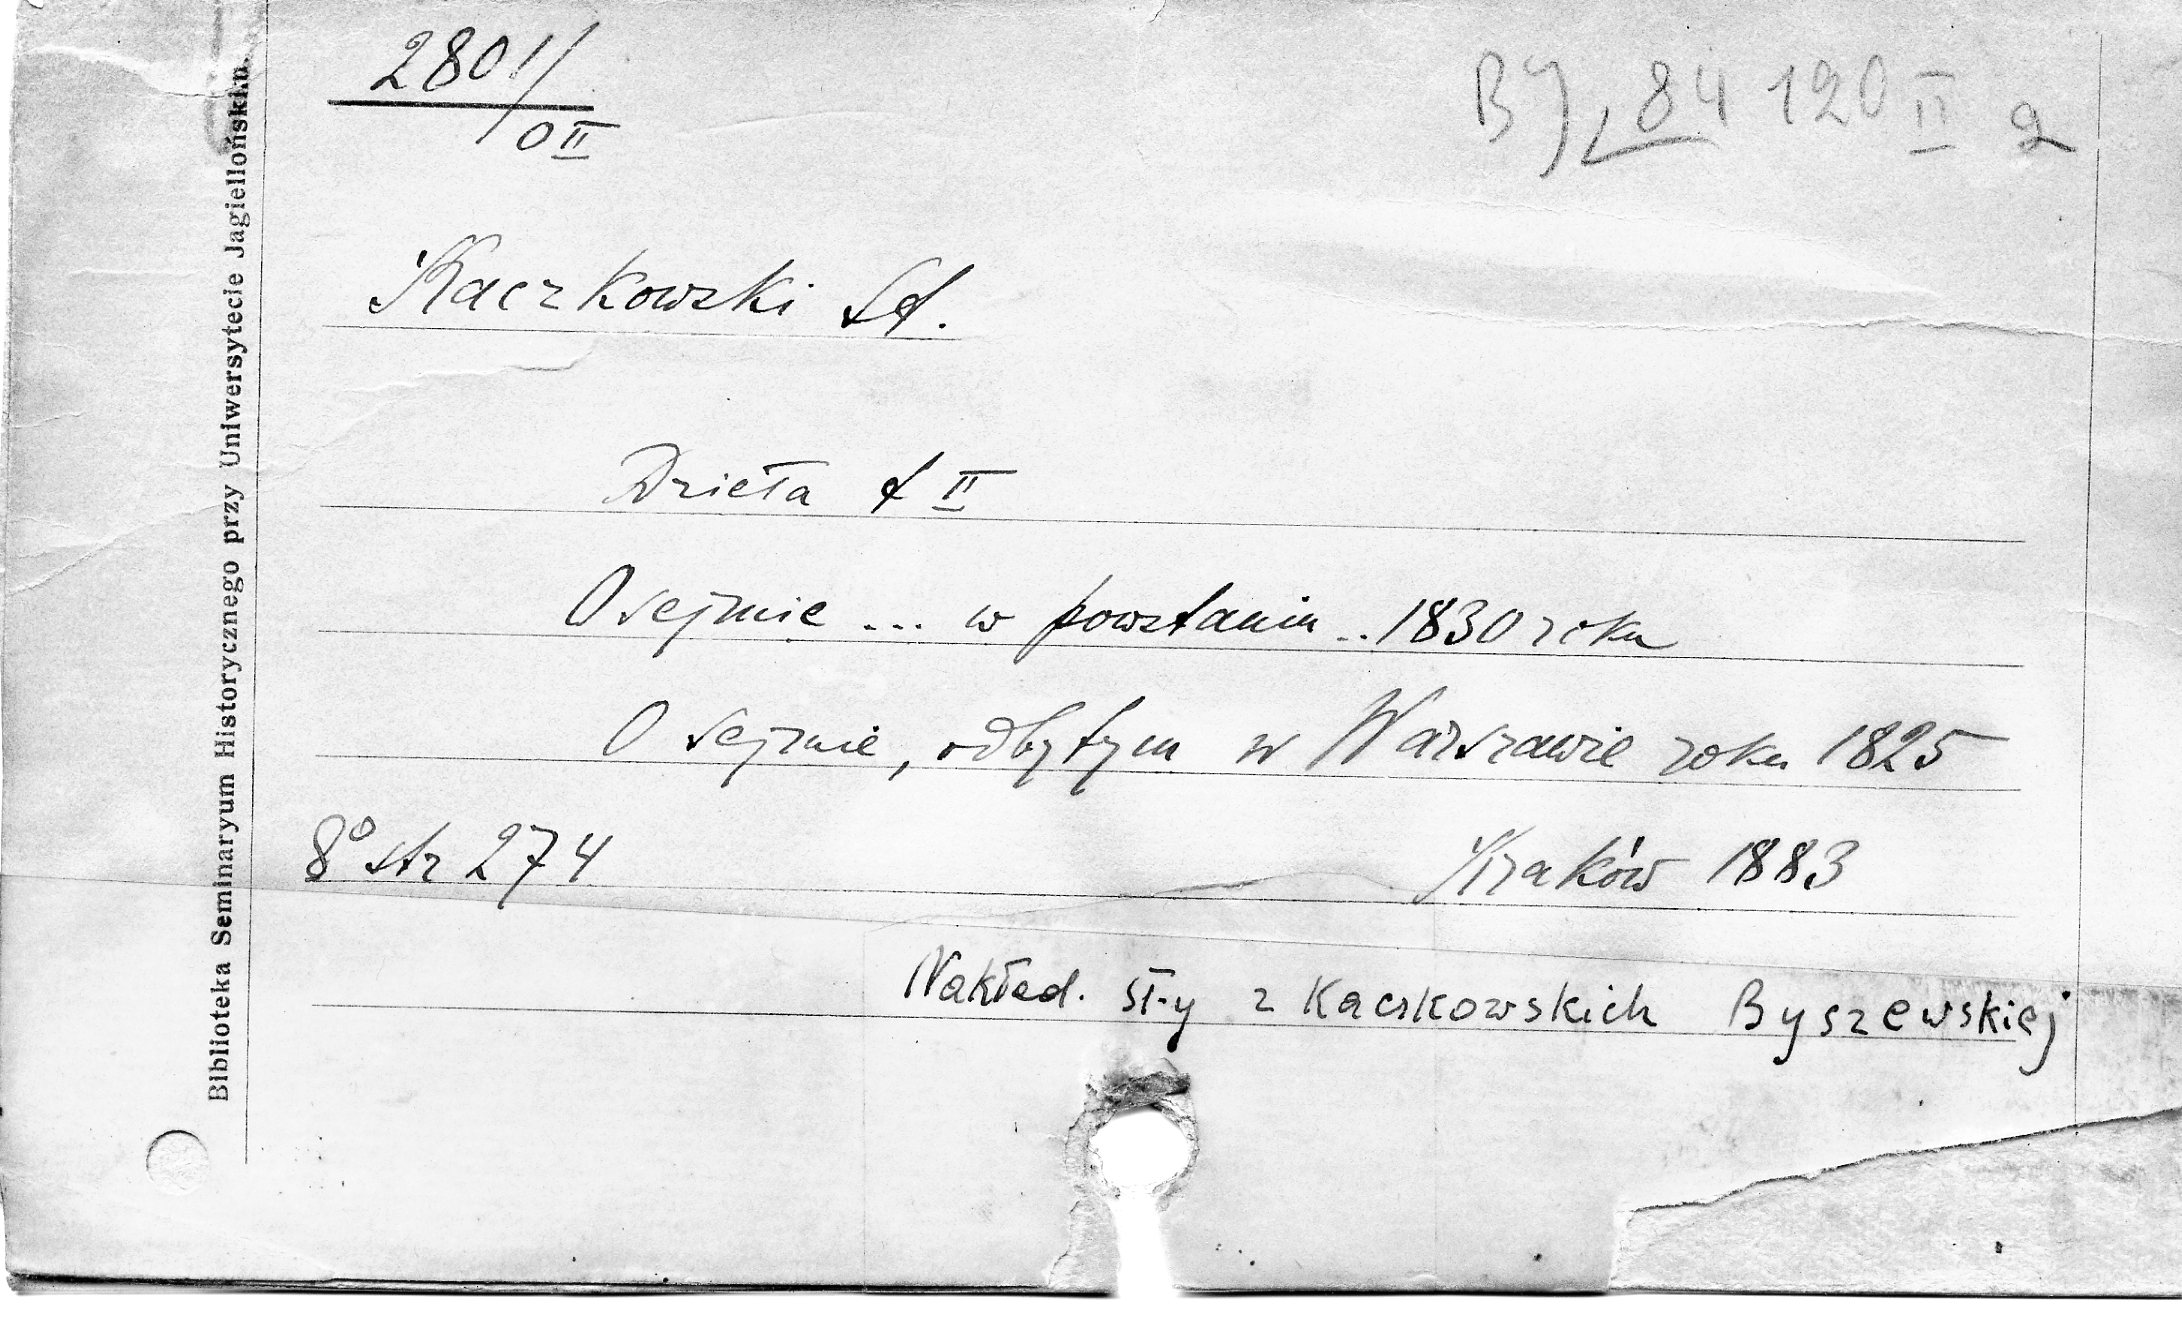 2801/
0 II
BJ, 84 120 II 2
Kaczkowski St.
Dzieła t II
O sejmie ... w powstaniu .. 1830 roku
O sejmie, odbytym w Warszawie roku 1825
8° str 274
Kraków 1883
Nakład. St-y z Kaczkowskich Byszewskiej
Biblioteka Seminaryum Historycznego przy Uniwersytecie Jagiellońskim.